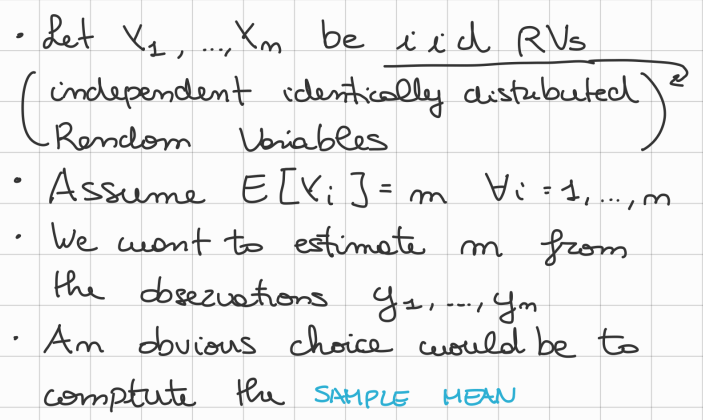 • Let Y₁, ..., Yₙ be iid RVs
(independent identically distributed
Random Variables)
• Assume E[Yᵢ] = m ∀i = 1, ..., n
• We want to estimate m from
the observations y₁, ..., yₙ
• An obvious choice would be to
comptute the SAMPLE MEAN